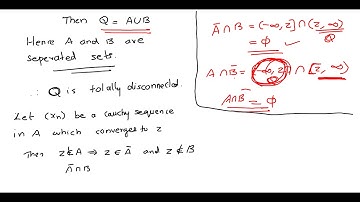 Then Q = A∪B
Hence A and B are
seperated sets.
∴ Q is totally disconnected.
Let (xn) be a cauchy sequence
in A which converges to z
Then z∉A ⇒ z ∈ Ā and z ∉ B
Ā∩B
Ā∩B = (-∞, z] ∩ (z, ∞)
Q
= ϕ ✓
A∩B̄ = (-∞, z) ∩ [z, ∞)
Q
A∩B̄ = ϕ